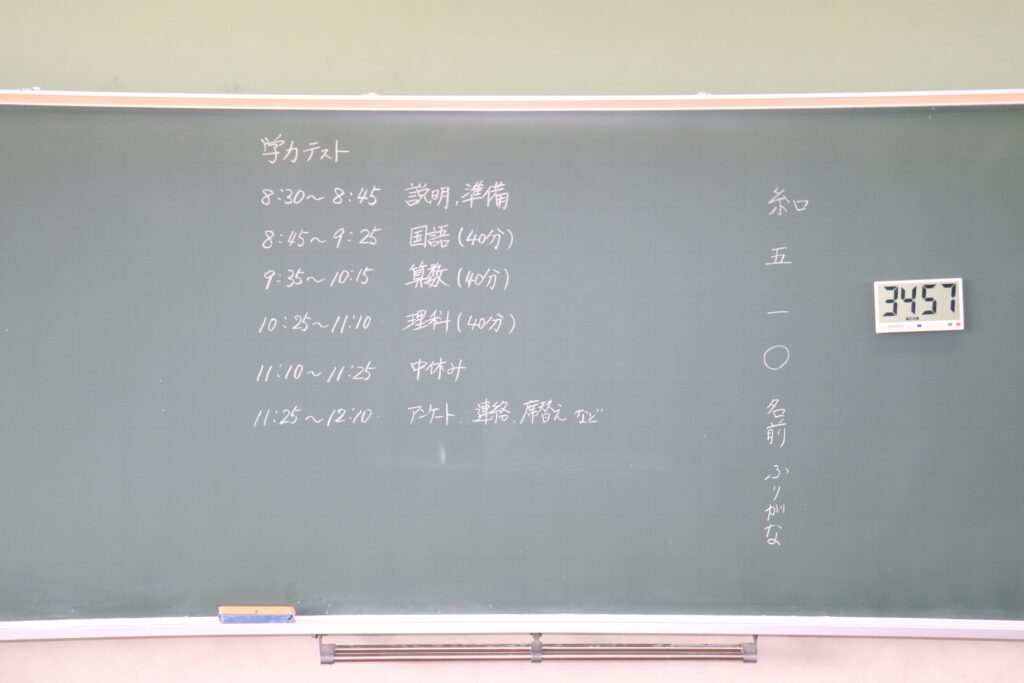 学力テスト
8:30～8:45 説明、準備
8:45～9:25 国語(40分)
9:35～10:15 算数(40分)
10:25～11:10 理科(40分)
11:10～11:25 中休み
11:25～12:10 アンケート、連絡、席替えなど
和 五 一 〇 名前 ふりがな
34 57